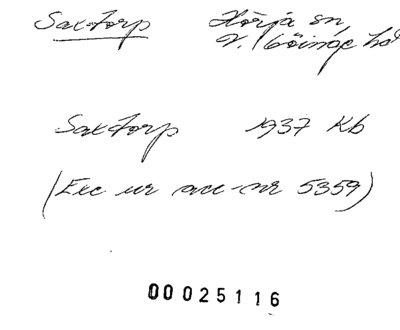 Saxtorp Hörja sn,
V. Göinge hd
Saxtorp 1937 Kb
(Exc ur acc-nr 5359)
00025116